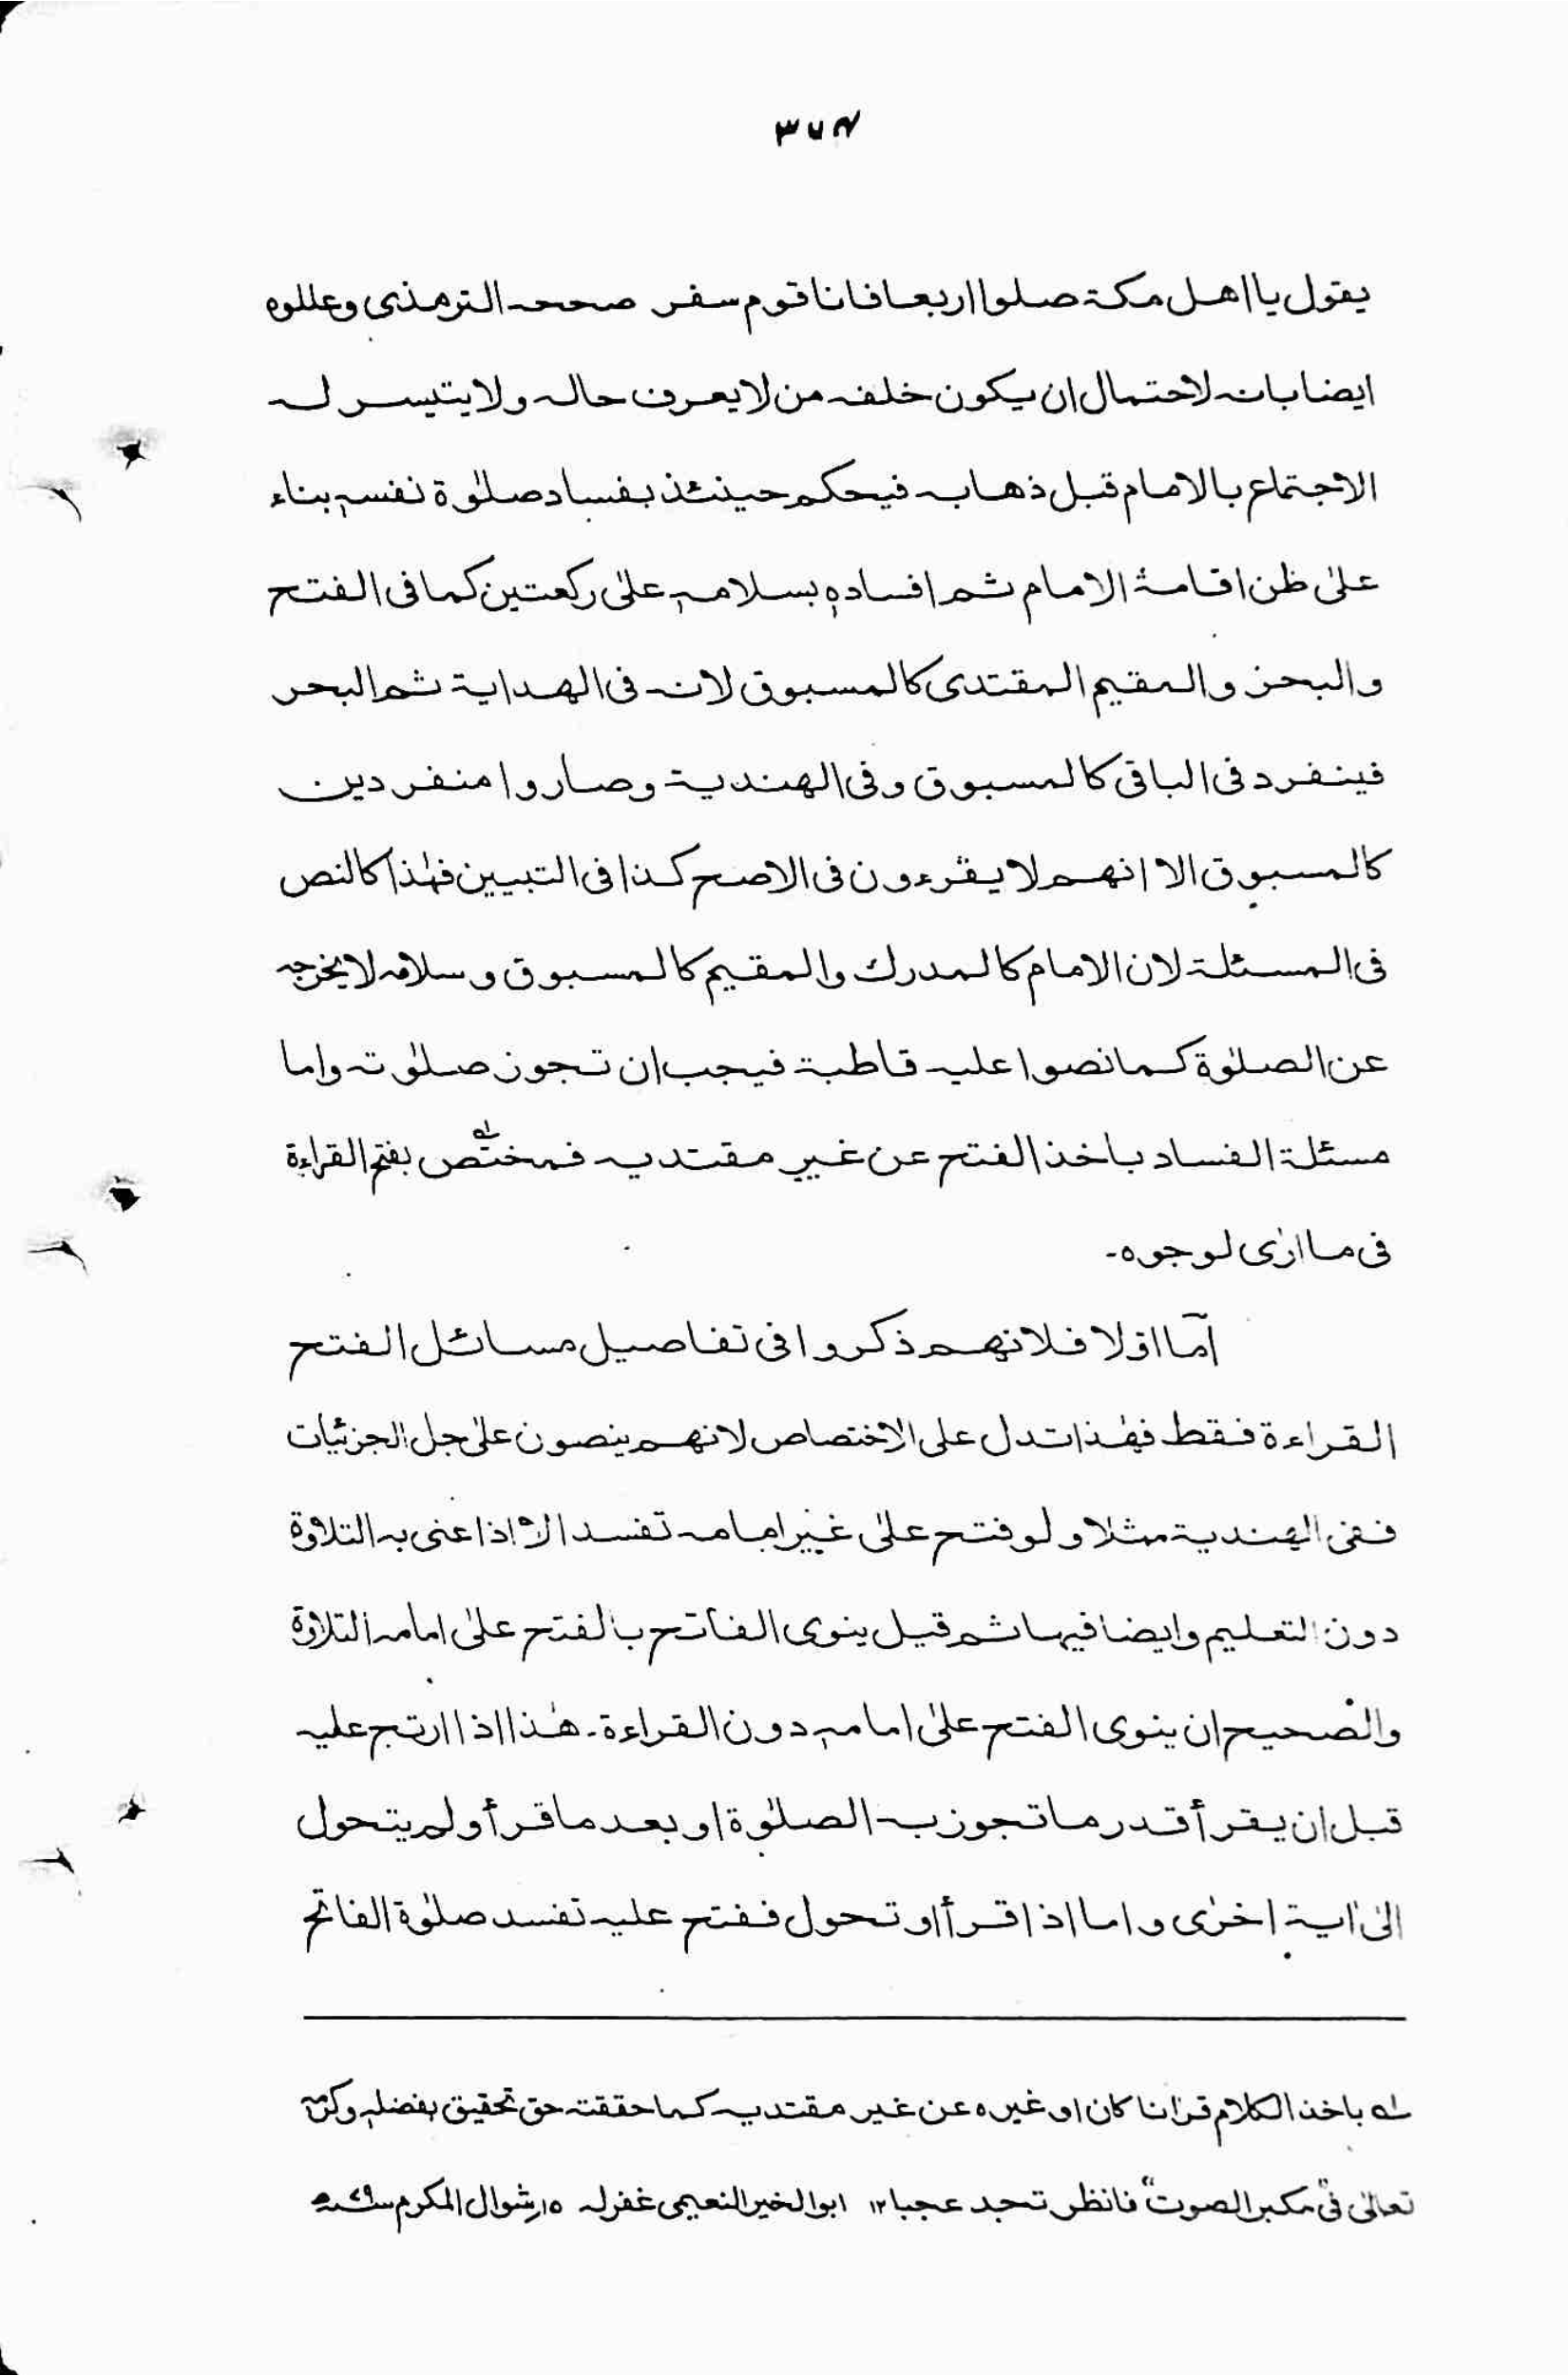 ۳۷۴
يقول يا اهل مكة صلوا اربعا فانا قوم سفر صححه الترمذى وعللوه
ايضا بانه لاحتمال ان يكون خلفه من لا يعرف حاله ولا يتيسر له
الاجتماع بالامام قبل ذهابه فيحكم حينئذ بفساد صلوٰة نفسه بناء
علىٰ ظن اقامة الامام ثم افساده بسلامه علىٰ ركعتين كما فى الفتح
والبحر والمقيم المقتدى كالمسبوق لانه فى الهداية ثم البحر
فينفرد فى الباقى كالمسبوق وفى الهندية وصاروا منفردين
كالمسبوق الا انهم لا يقرءون فى الاصح كذا فى التبيين فهٰذا كالنص
فى المسئلة لان الامام كالمدرك والمقيم كالمسبوق وسلامه لا يخرجه
عن الصلوٰة كما نصوا عليه قاطبة فيجب ان تجوز صلوٰته واما
مسئلة الفساد باخذ الفتح عن غير مقتديه فمختص لہ بفتح القراءة
فى ما ارٰى لوجوه۔
اَمّا اوّلا فلانهم ذكروا فى تفاصيل مسائل الفتح
القراءة فقط فهٰذا تدل على الاختصاص لانهم ينصون علىٰ جل الجزئيات
ففى الهندية مثلا ولو فتح علىٰ غير امامه تفسد الا اذا عنى به التلاوة
دون التعليم وايضا فيها ثم قيل ينوى الفاتح بالفتح علىٰ امامه التلاوة
والصحيح ان ينوى الفتح علىٰ امامه دون القراءة۔ هٰذا اذا ارتج عليه
قبل ان يقرأ قدر ما تجوز به الصلوٰة او بعد ما قرأ ولم يتحول
الىٰ اٰية اخرٰى واما اذا قرأ او تحول ففتح عليه تفسد صلوٰة الفاتح
لہ باخذ الكلام قراٰنا كان او غيره عن غير مقتديه كما حققته حق تحقيق بفضله وكرمه
تعالىٰ فى "مكبر الصوت" فانظر تجد عجبا ۱۲ ابو الخير النعيمى غفرله ۱۵ رشوال المكرم